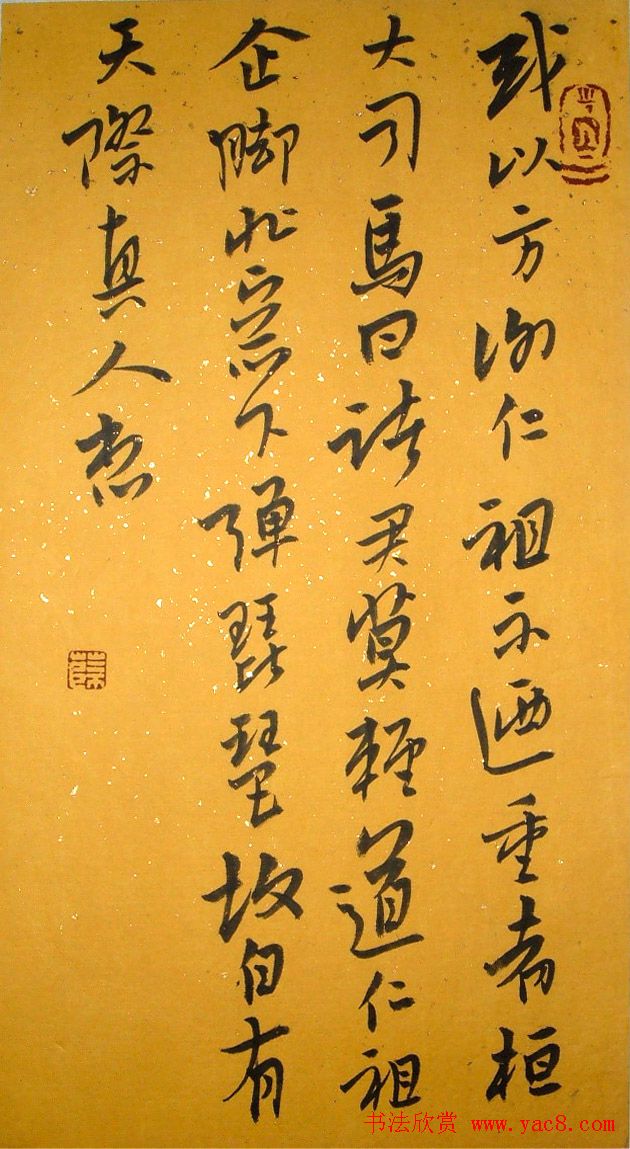 或以方謝仁祖不迺重者桓
大司馬曰諸君莫輕道仁祖
企脚北窗下彈琵琶故自有
天際真人想
书法欣赏 www.yac8.com